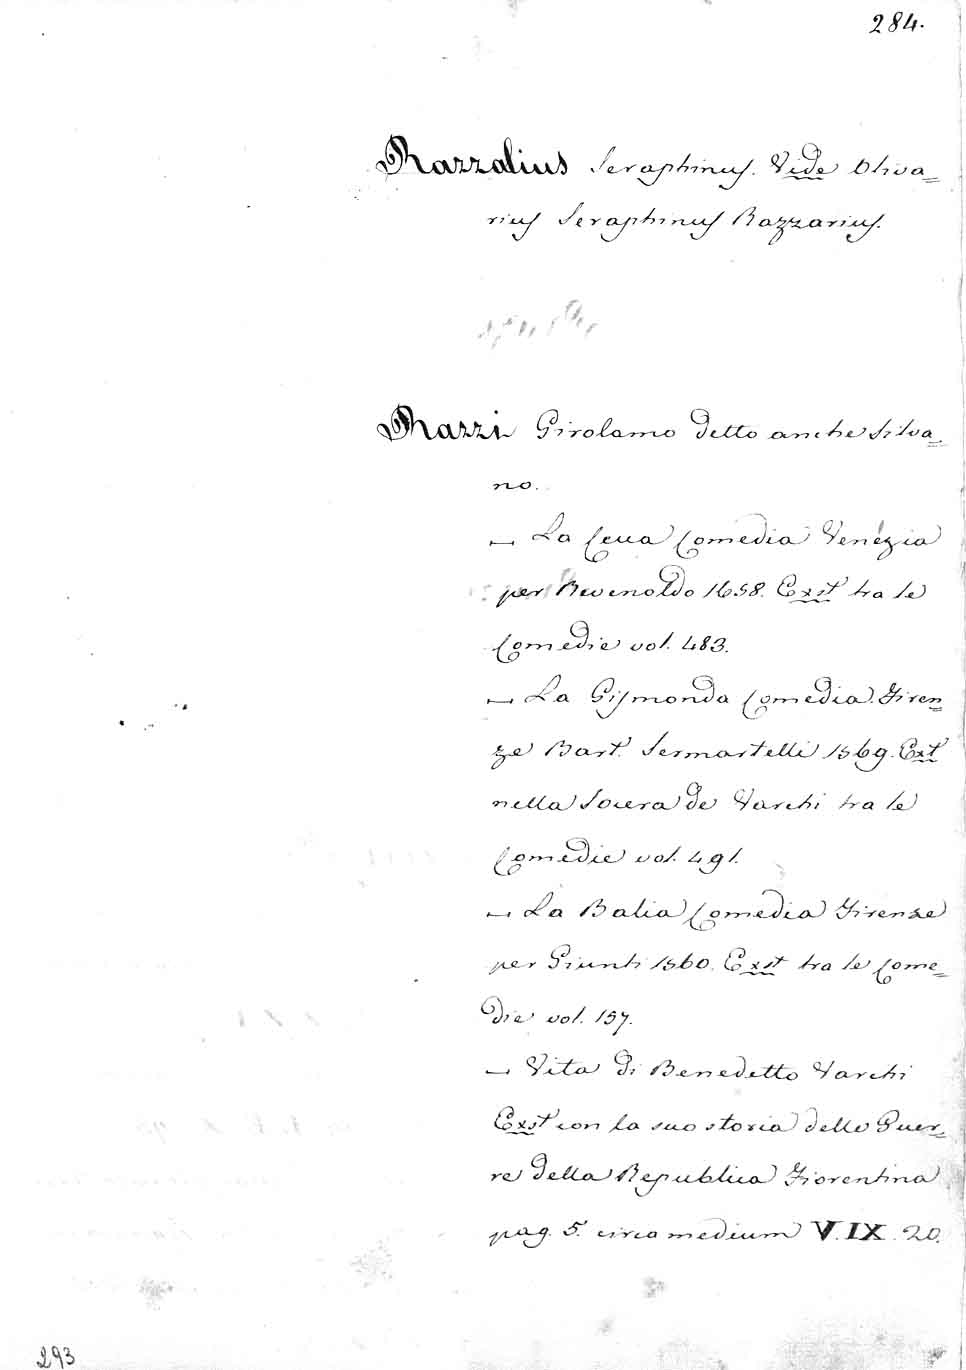 284.
Razzalius Seraphinus. Vide Oliva=
rius Seraphinus Razzarius.
Razzi Girolamo detto anche Silva=
no.
— La Cecca Comedia Venezia
per Revenoldo 1658. Exst tra le
Comedie vol. 483.
— La Gismonda Comedia. Firen=
ze Bart. Sermartelli 1569. Ext
nella Socera de Varchi tra le
Comedie vol. 491.
— La Balia Comedia Firenze
per Giunti 1560. Exst tra le Come=
die vol. 157.
— Vita di Benedetto Varchi
Exst con la sua storia delle Guer=
re della Republica Fiorentina
pag. 5. circa medium V. IX. 20.
293